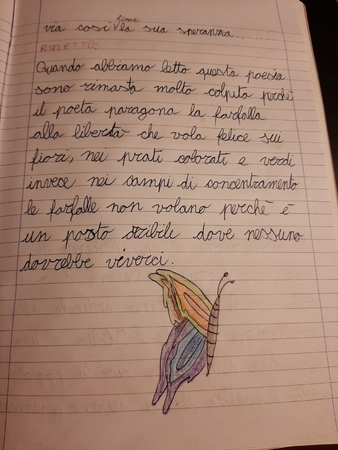 via così come la sua speranza...
RIFLETTO:
Quando abbiamo letto questa poesia
sono rimasta molto colpita perché
il poeta paragona la farfalla
alla libertà che vola felice sui
fiori, nei prati colorati e verdi
invece nei campi di concentramento
le farfalle non volano perchè è
un posto stribile dove nessuno
dovrebbe viverci.